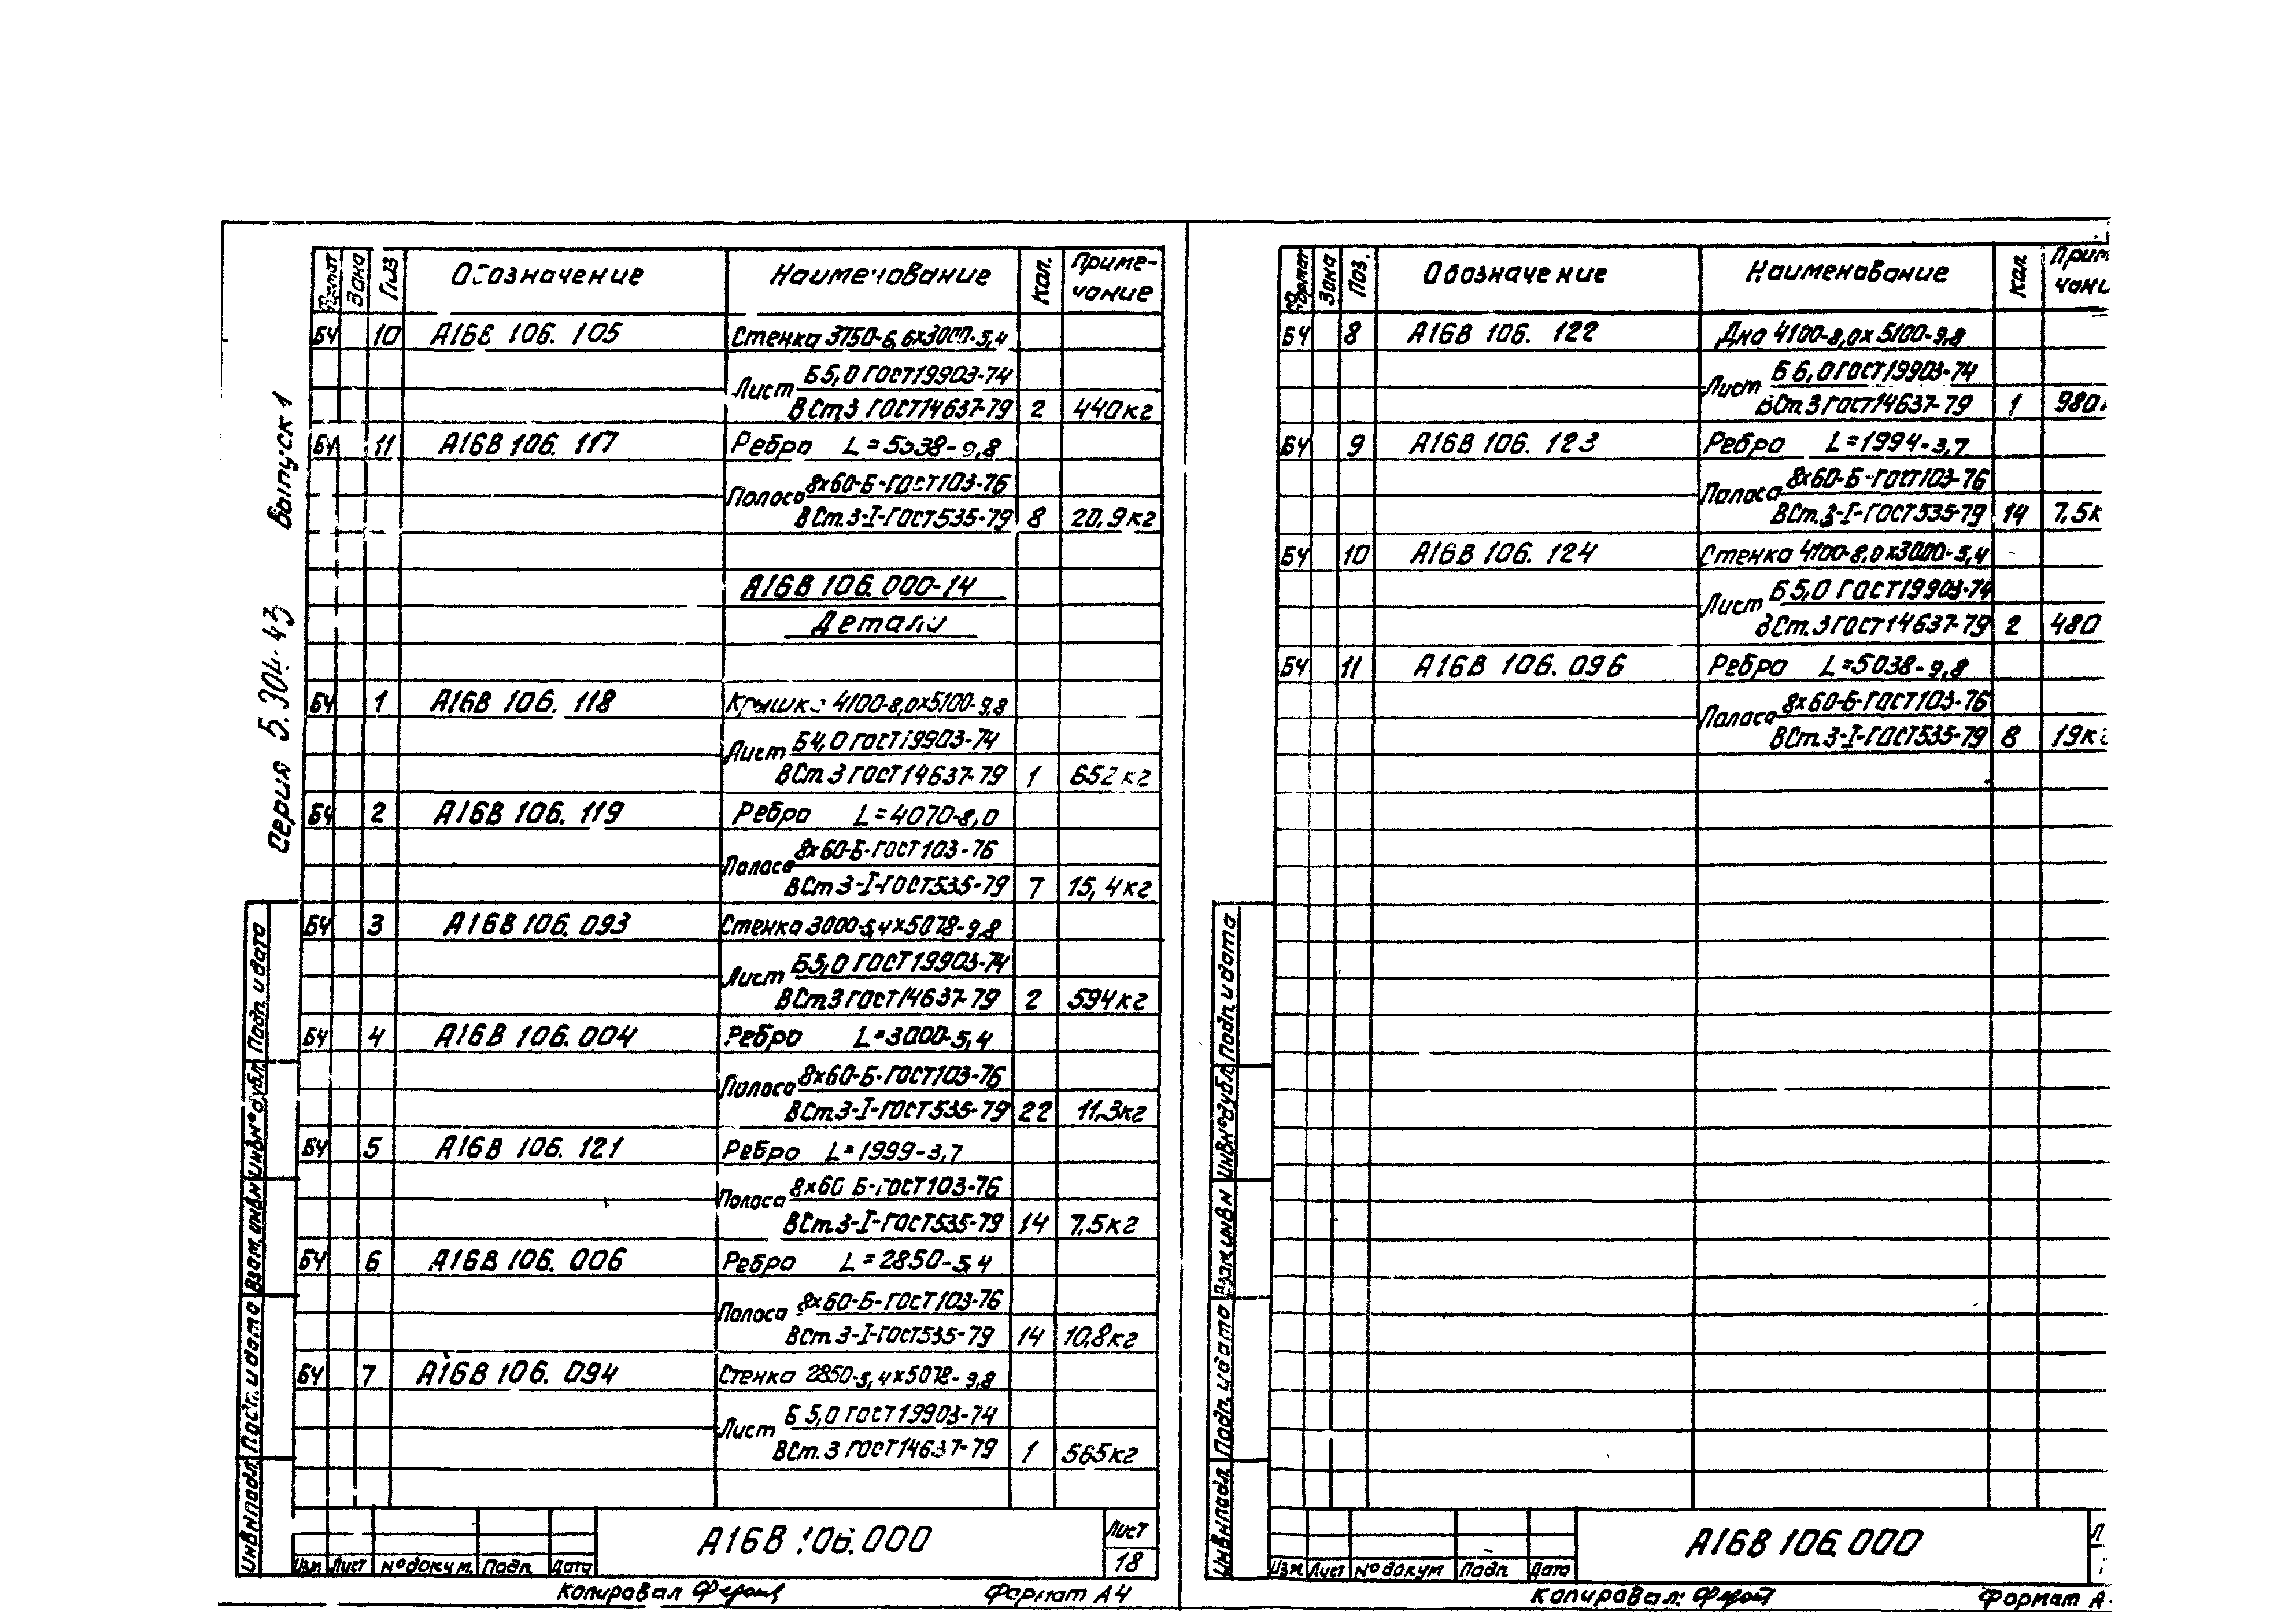 Серия 5.304-43 Выпуск 1
Формат Зона Поз Обозначение Наименование Кол. Приме-
чание
БЧ 10 А16В 106. 105 Стенка 3750-6,6х3000-5,4
Б5,0 ГОСТ19903-74
Лист
ВСт3 ГОСТ14637-79 2 440кг
БЧ 11 А16В 106. 117 Ребро L=5538-9,8
8х60-Б-ГОСТ103-76
Полоса
ВСт.3-I-ГОСТ535-79 8 20,9кг
А16В 106.000-14
Детали
БЧ 1 А16В 106. 118 Крышка 4100-8,0х5100-9,8
Б4,0 ГОСТ19903-74
Лист
ВСт.3 ГОСТ14637-79 1 652кг
БЧ 2 А16В 106. 119 Ребро L=4070-8,0
8х60-Б-ГОСТ103-76
Полоса
ВСт3-I-ГОСТ535-79 7 15,4кг
БЧ 3 А16В 106. 093 Стенка 3000-5,4х5078-9,8
Б5,0 ГОСТ19903-74
Лист
ВСт3 ГОСТ14637-79 2 594кг
БЧ 4 А16В 106.004 Ребро L=3000-5,4
8х60-Б-ГОСТ103-76
Полоса
ВСт.3-I-ГОСТ535-79 22 11,3кг
БЧ 5 А16В 106. 121 Ребро L=1999-3,7
8х60 Б-ГОСТ103-76
Полоса
ВСт.3-I-ГОСТ535-79 14 7,5кг
БЧ 6 А16В 106. 006 Ребро L=2850-5,4
8х60-Б-ГОСТ103-76
Полоса
ВСт.3-I-ГОСТ535-79 14 10,8кг
БЧ 7 А16В 106. 094 Стенка 2850-5,4х5078-9,8
Б 5,0 ГОСТ19903-74
Лист
ВСт.3 ГОСТ14637-79 1 565кг
Инв№подл. Подп. и дата Взам.инв№ Инв№дубл. Подп. и дата
А16В 106.000
Лист
18
Изм Лист №докум. Подп. Дата
Копировал Формат А4
Формат Зона Поз. Обозначение Наименование Кол. Прим
чани
БЧ 8 А16В 106. 122 Дно 4100-8,0х5100-9,8
Б 6,0 ГОСТ19903-74
Лист
ВСт.3 ГОСТ14637-79 1 980
БЧ 9 А16В 106. 123 Ребро L=1994-3,7
8х60-Б-ГОСТ103-76
Полоса
ВСт.3-I-ГОСТ535-79 14 7.5к
БЧ 10 А16В 106. 124 Стенка 4100-8,0х3000-5,4
Б5,0 ГОСТ19903-74
Лист
ВСт.3 ГОСТ14637-79 2 480
БЧ 11 А16В 106. 096 Ребро L=5038-9,8
8х60-Б-ГОСТ103-76
Полоса
ВСт.3-I-ГОСТ535-79 8 19кг
Инв№подл. Подп. и дата Взам инв№ Инв№дубл. Подп. и дата
А16В 106.000
Изм Лист №докум Подп Дата
Копировал: Формат А